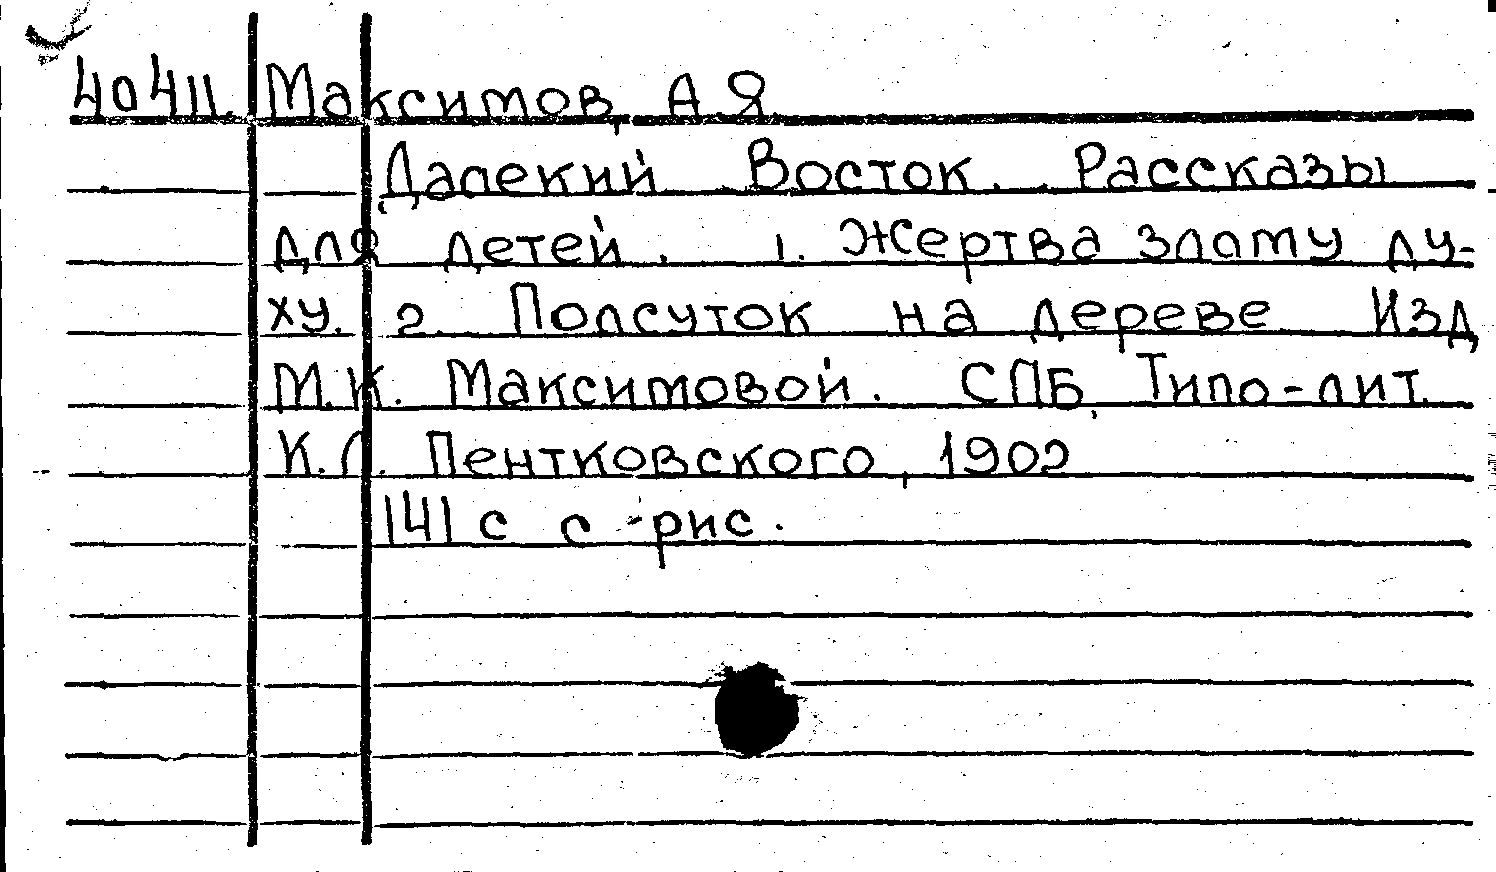 40411. Максимов, А Я
Далекий Восток. Рассказы
для детей. 1. Жертва злому ду-
ху. 2. Полсуток на дереве Изд
М.К. Максимовой. СПБ, Типо-лит.
К.Л. Пентковского, 1902
141 с с рис.